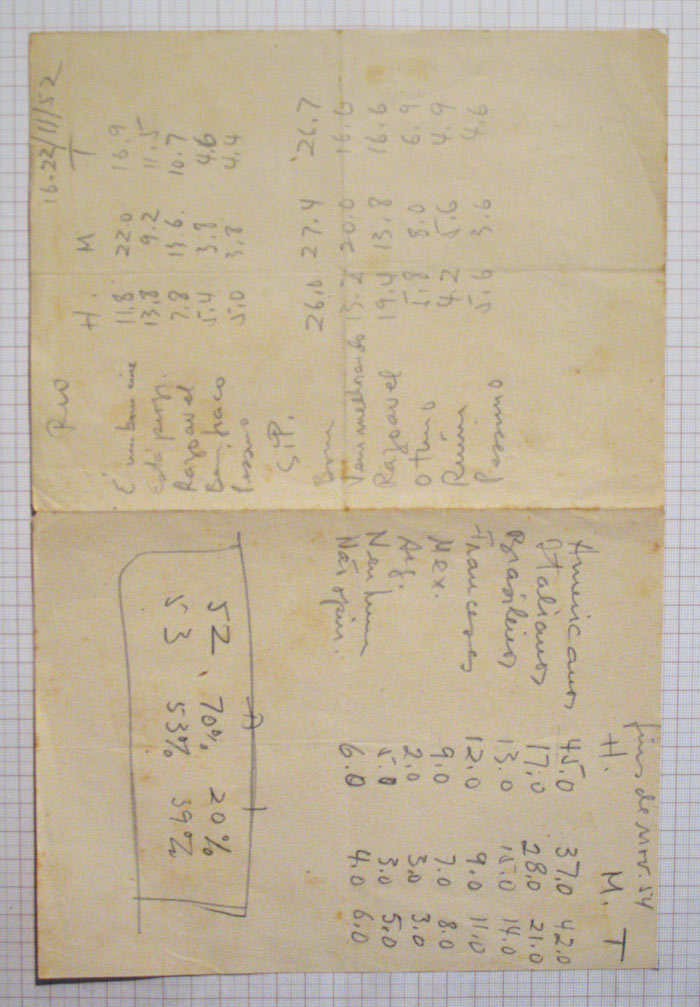 Rio 16-22/11/52
H. M T
É um bom cine 11.8 22.0 16.9
Está prog. 13.8 9.2 11.5
Razoavel 7.8 13.6 10.7
Bem fraco 5.4 3.8 4.6
Pessimo 5.0 3.8 4.4
S.P.
Bom 26.0 27.4 26.7
Vem melhorando 13.2 20.0 16.6
Razoavel 19.4 13.8 16.6
Otimo 5.8 8.0 6.9
Ruim 4.2 5.6 4.9
Pessimo 5.6 3.6 4.6
fins de nov. 54
H. M. T
Americanos 45.0 37.0 42.0
Italianos 17.0 28.0 21.0
Brasileiros 13.0 15.0 14.0
Franceses 12.0 9.0 11.0
Mex. 9.0 7.0 8.0
Arg. 2.0 3.0 3.0
Nenhum 5.0 3.0 5.0
Não opin. 6.0 4.0 6.0
52 70% 20%
53 53% 39%